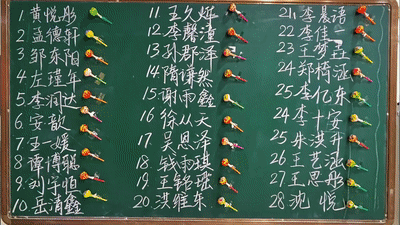 1.黄悦彤
2.孟德轩
3.邹东阳
4.左瑾年
5.李润达
6.安歆
7.王一媛
8.谭博聪
9.刘宇恒
10.岳清鑫
11.王久烨
12.李馨滢
13.孙郡泽
14.隋谦然
15.谢雨鑫
16.徐从天
17.吴恩泽
18.钱雨琪
19.王铭瑶
20.洪维东
21.李晨语
22.李佳一
23.王梦
24.郑椅
25.李亿东
24.李十安
25.朱淇升
26.王艺泓
27.王思彤
28.沈悦